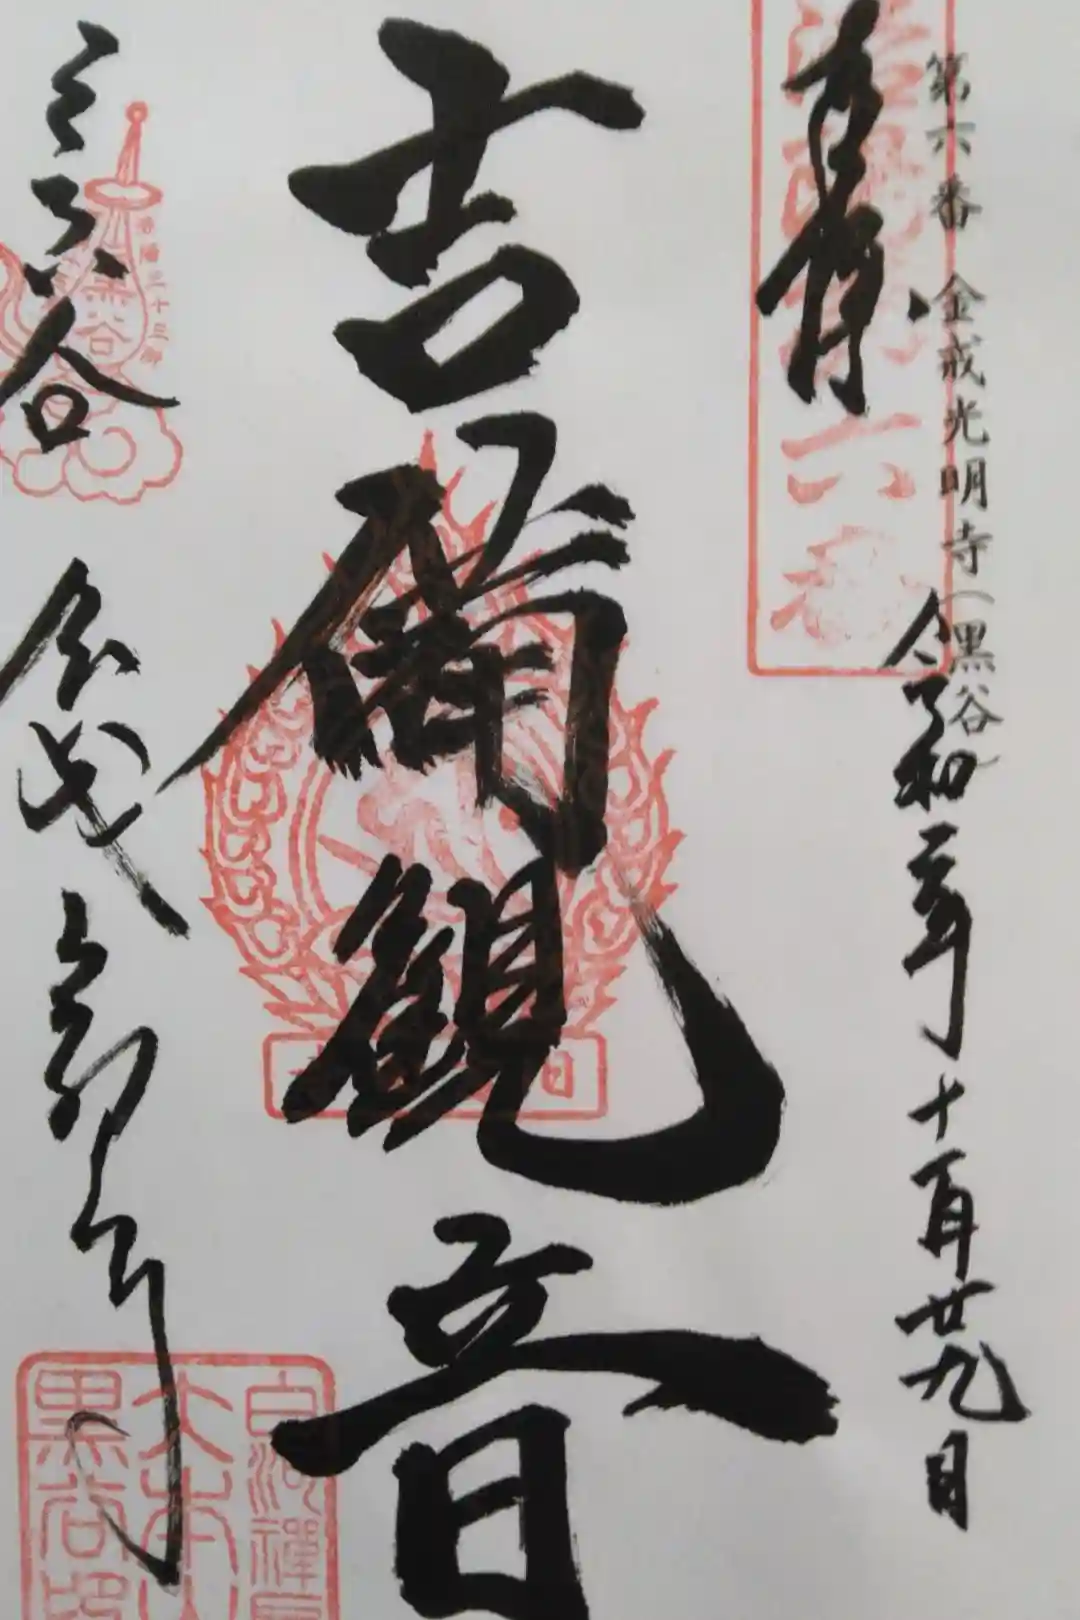 第六番 金戒光明寺(黒谷
奉拝
令和二年 十一月廿九日
吉備観音
くろ谷 金戒光明寺
洛陽三十三所
黒谷
六番
吉 日
白河禅
大本山
黒谷